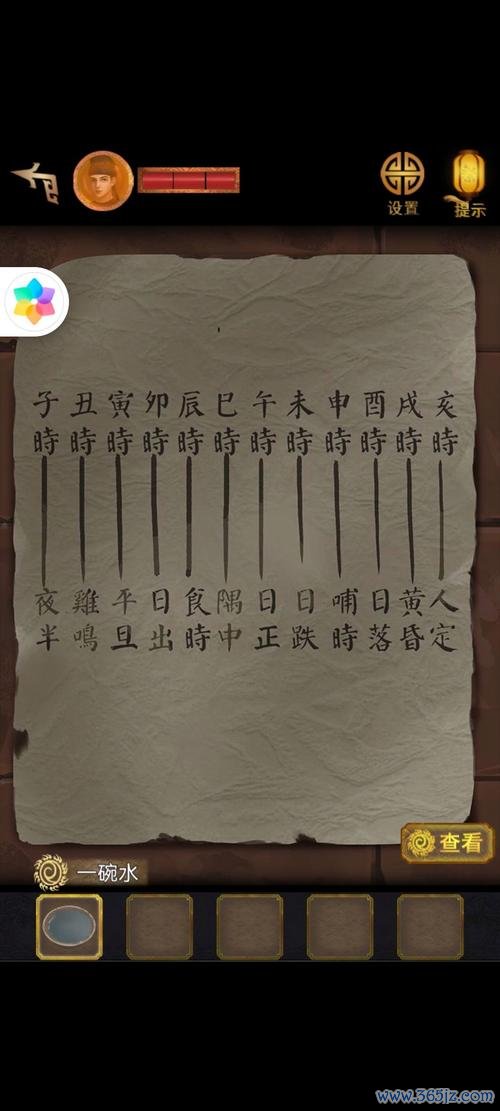 设置
提示
子丑寅卯辰巳午未申酉戌亥
時時時時時時時時時時時時
夜雞平日食隅日日哺日黄人
半鳴旦出時中正跌時落昏定
查看
一碗水
www.365jz.com